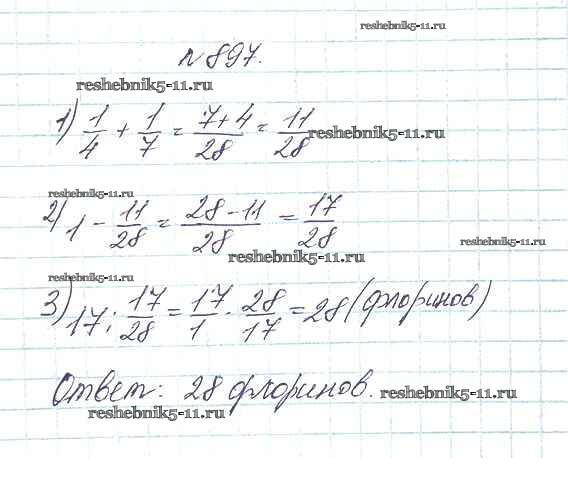 reshebnik5-11.ru
№897.
reshebnik5-11.ru
1) 1/4 + 1/7 = (7+4)/28 = 11/28
reshebnik5-11.ru
reshebnik5-11.ru
2) 1 - 11/28 = (28-11)/28 = 17/28
reshebnik5-11.ru
reshebnik5-11.ru
reshebnik5-11.ru
3) 17 : 17/28 = 17/1 · 28/17 = 28 (флоринов)
Ответ: 28 флоринов.
reshebnik5-11.ru
reshebnik5-11.ru